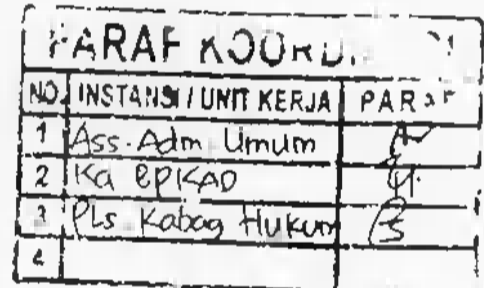 PARAF KOORDI
NO. INSTANSI / UNIT KERJA PARAF
1 Ass. Adm Umum
2 Ka BPKAD
3 Pls Kabag Hukum
4